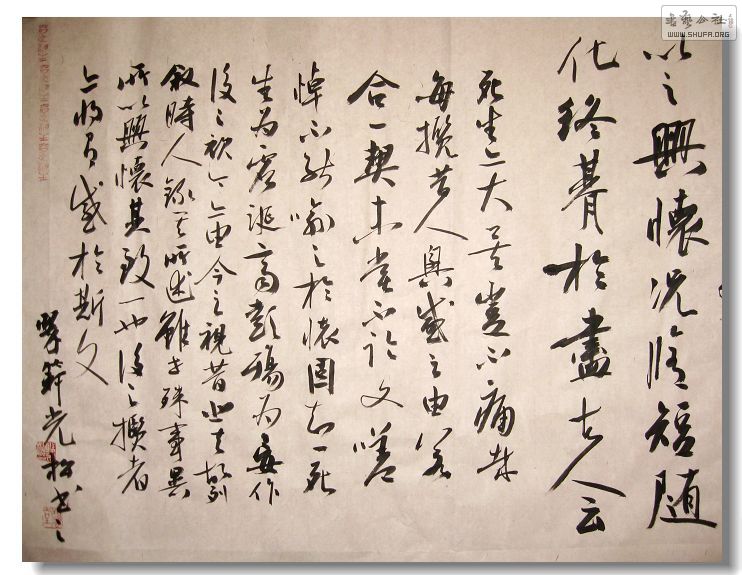 书艺公社
WWW.SHUFA.ORG
以之興懷况脩短隨
化終朞於盡古人云
死生亦大矣豈不痛哉
每攬昔人興感之由若
合一契未嘗不臨文嗟
悼不能喻之於懷固知一死
生為虚誕齊彭殤為妄作
後之視今亦由今之視昔悲夫故列
敘時人録其所述雖世殊事異
所以興懷其致一也後之攬者
亦將有感於斯文
光松书